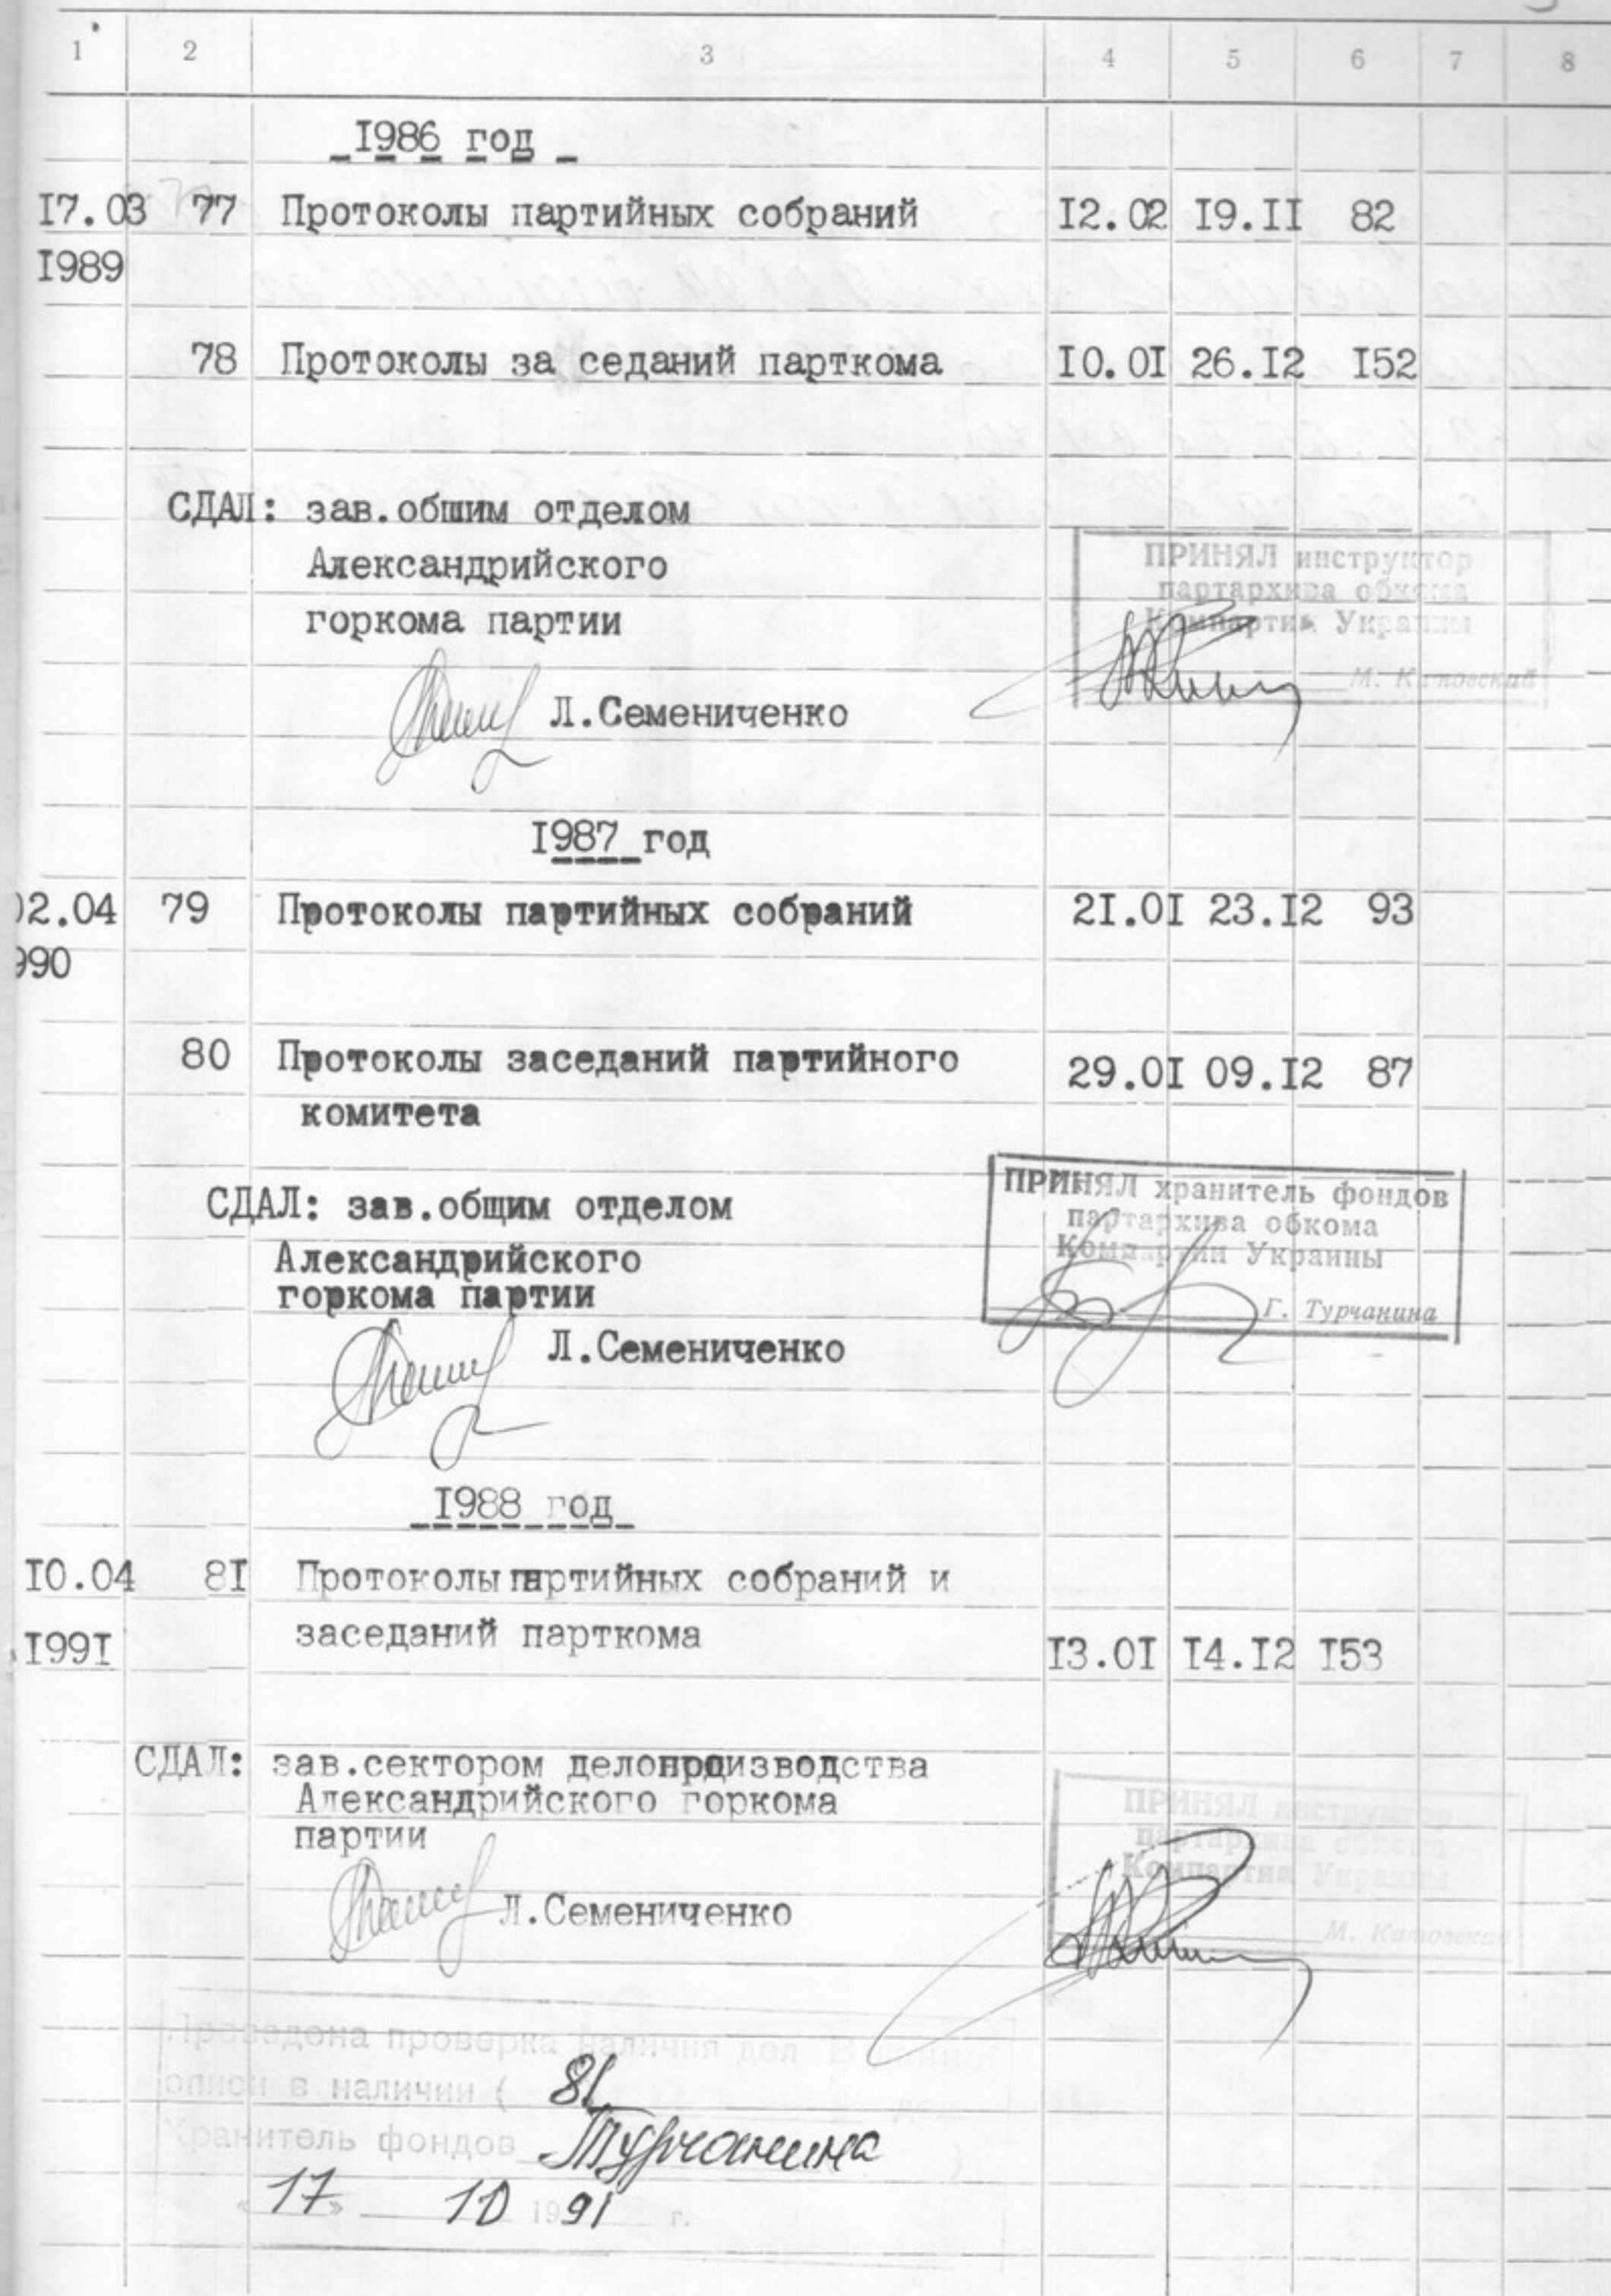 1 2 3 4 5 6 7 8
I986 год
I7.03 77 Протоколы партийных собраний I2.02 I9.II 82
I989
78 Протоколы за седаний парткома I0.0I 26.I2 I52
СДАЛ: зав.обшим отделом
Александрийского
горкома партии
Л.Семениченко
ПРИНЯЛ инструктор
партархива обкома
Компартии Украины
М.
I987 год
02.04 79 Протоколы партийных собраний 2I.0I 23.I2 93
990
80 Протоколы заседаний партийного 29.0I 09.I2 87
комитета
СДАЛ: зав.общим отделом
Александрийского
горкома партии
Л.Семениченко
ПРИНЯЛ хранитель фондов
партархива обкома
Компартии Украины
Г. Турчанина
I988 год
I0.04 8I Протоколы партийных собраний и
I99I заседаний парткома I3.0I I4.I2 I53
СДАЛ: зав.сектором делопроизводства
Александрийского горкома
партии
Л.Семениченко
ПРИНЯЛ инструктор
партархива обкома
Компартии Украины
М.
Проведена проверка наличия дел В данной
описи в наличии ( 81
Хранитель фондов Турчанина
« 17 » 10 19 91 г.